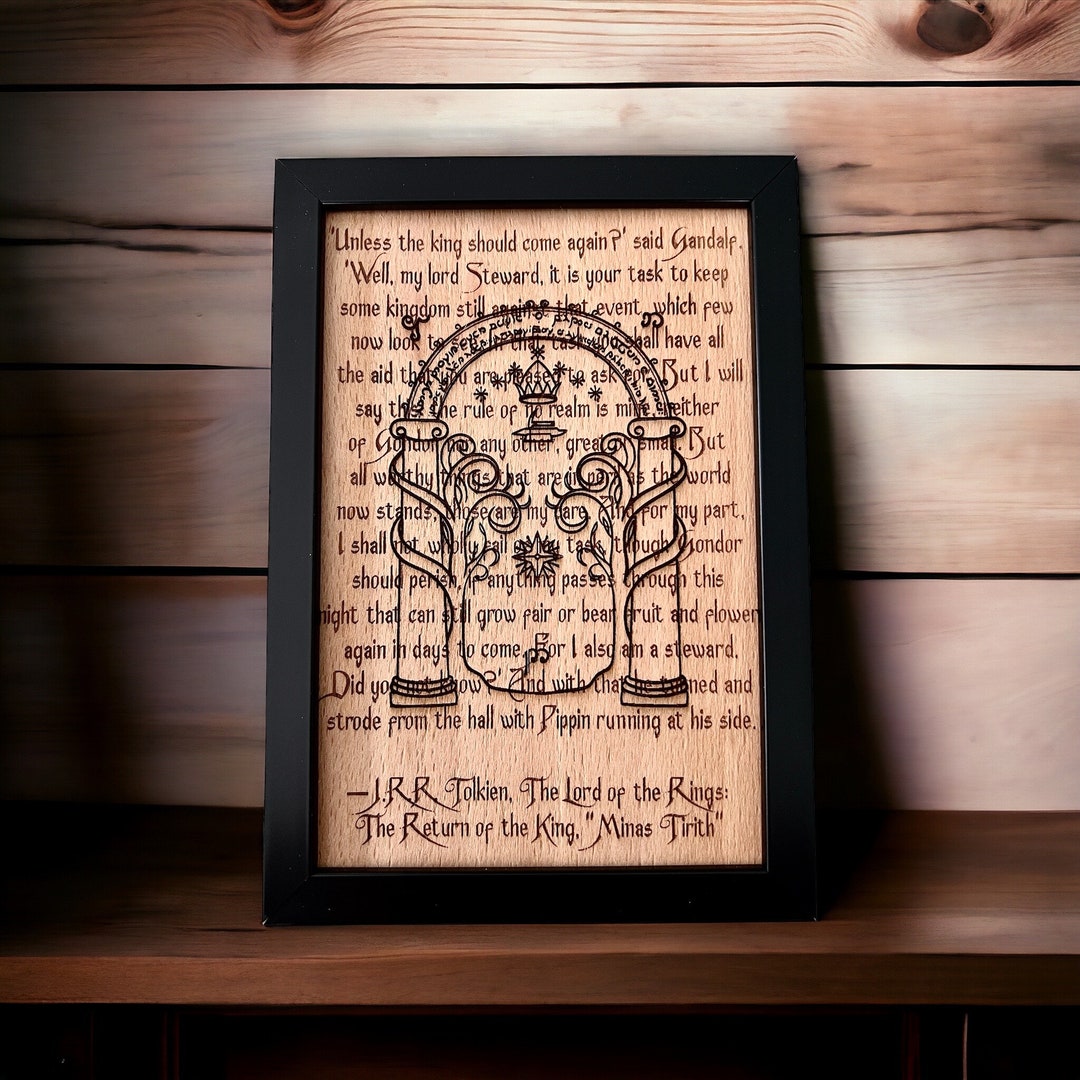 'Unless the king should come again?' said Gandalf.
'Well, my lord Steward, it is your task to keep
some kingdom still against that event, which few
now look to see. In that task you shall have all
the aid that you are pleased to ask for. But I will
say this: the rule of no realm is mine, neither
of Gondor nor any other, great or small. But
all worthy things that are in peril as the world
now stands, those are my care. And for my part,
I shall not wholly fail of my task, though Gondor
should perish, if anything passes through this
night that can still grow fair or bear fruit and flower
again in days to come. For I also am a steward.
Did you not know?' And with that he turned and
strode from the hall with Pippin running at his side.
—J.R.R. Tolkien, The Lord of the Rings:
The Return of the King, "Minas Tirith"